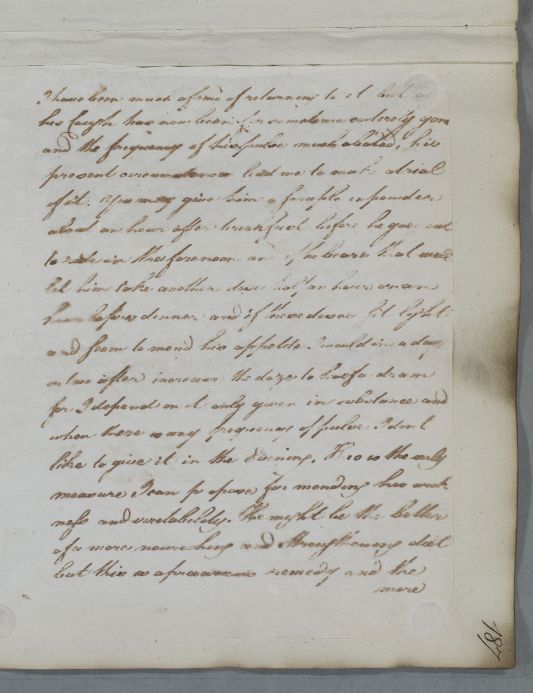 I have been much afraid of returning to it but as
his Cough has now been for sometime entirely gon
and the frequency of his pulse much abated, his
present circumstances lead me to make a trial
of it. You may give him a scruple in powder
about an hour after breakfast before he goes out
to ride in the forenoon and if he bears that well
let him take another dose half an hour or an
hour before dinner and if these doses sit light
and seem to mend his appetite I would in a day
or two after increase the doze to half a dram
for I depend on it only given in substance and
when there is any frequency of pulse I dont
like to give it in the Evening. This is the only
measure I can propose for mending his weak
ness and irritability. He might be the better
of a more nourishing and strengthening diet
but this is a precarious remedy and the
more
187